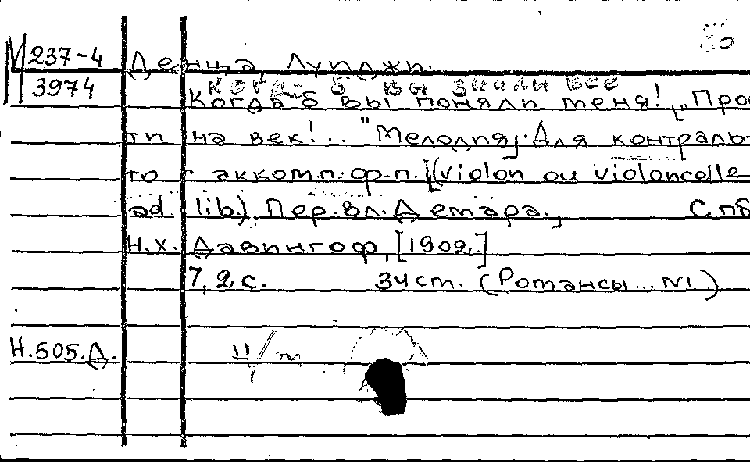 М 237-4
3974
Денца, Луиджи.
Когда б вы знали все
Когда б вы поняли меня! ["Прос
ти на век!.. "Мелодия]. Для контраль
то с аккомп. ф-п. [(violon ou violoncelle
ad lib). Пер. Вл. Детара., СПб
Н.Х. Давингоф, [1909.]
7, 2, с. 34 ст. (Романсы. №1)
Н.505.Д.